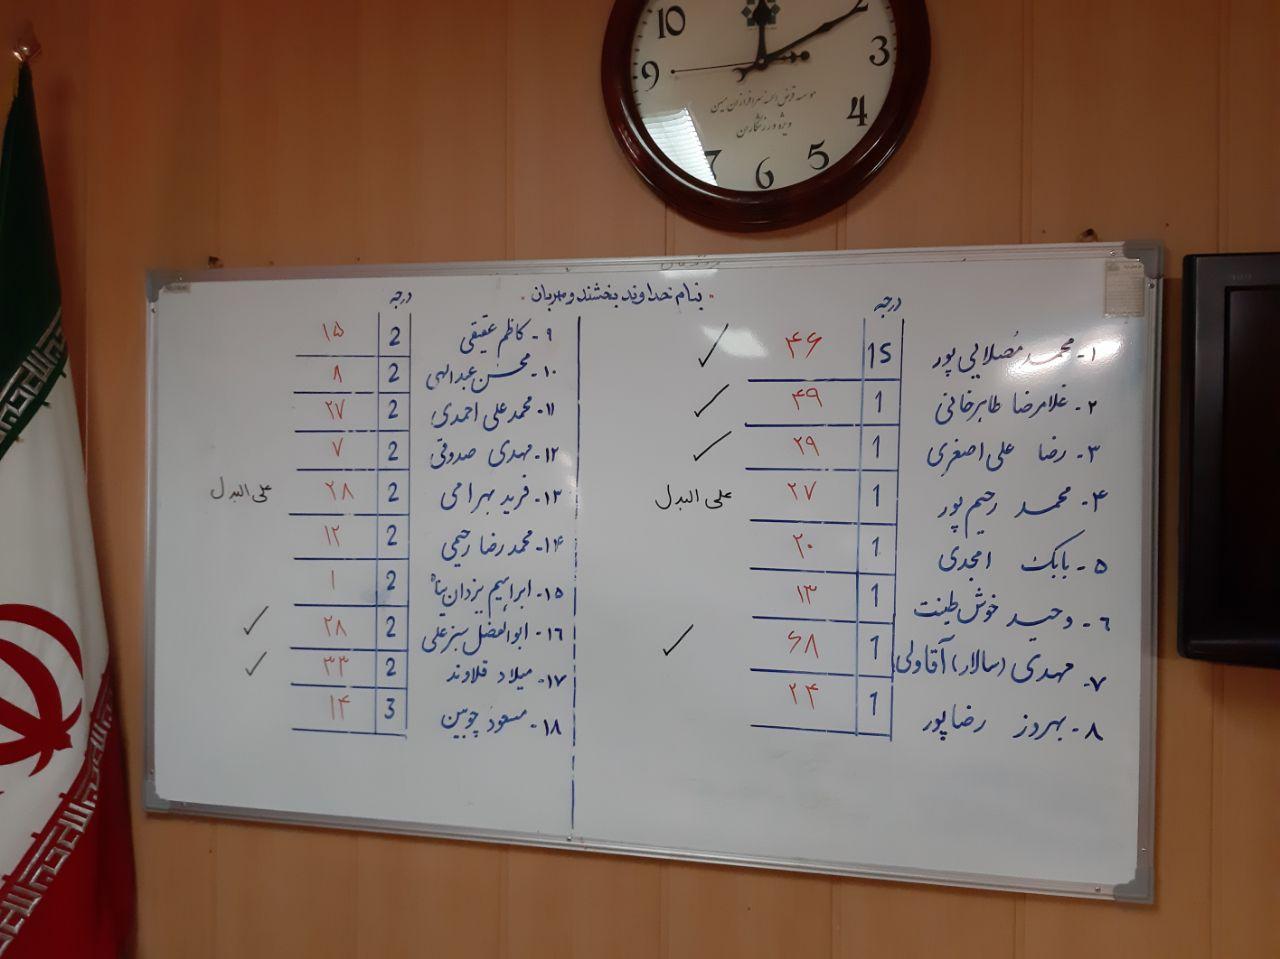 10
2
9
3
4
5
6
7
موسسه قرض الحسنه سرافرازان میهن
ویژه ورزشکاران
بنام خداوند بخشنده و مهربان
درجه
۱- محمد مُصلایی پور 1S ۴۶ ✓
۲- غلامرضا طاهرخانی 1 ۴۹ ✓
۳- رضا علی اصغری 1 ۲۹ ✓
۴- محمد رحیم پور 1 ۲۷ علی البدل
۵- بابک امجدی 1 ۲۰
۶- وحید خوش طینت 1 ۱۳
۷- مهدی (سالار) آقاولی 1 ۶۸ ✓
۸- بهروز رضاپور 1 ۲۴
درجه
۹- کاظم عقیقی 2 ۱۵
۱۰- محسن عبدالهی 2 ۸
۱۱- محمد علی احمدی 2 ۲۷
۱۲- مهدی صدوقی 2 ۷
۱۳- فرید بهرامی 2 ۲۸ علی البدل
۱۴- محمدرضا رحیمی 2 ۱۲
۱۵- ابراهیم یزدان پناه 2 ۱
۱۶- ابوالفضل سبزعلی 2 ۲۸ ✓
۱۷- میلاد قلاوند 2 ۳۳ ✓
۱۸- مسعود چوبین 3 ۱۴